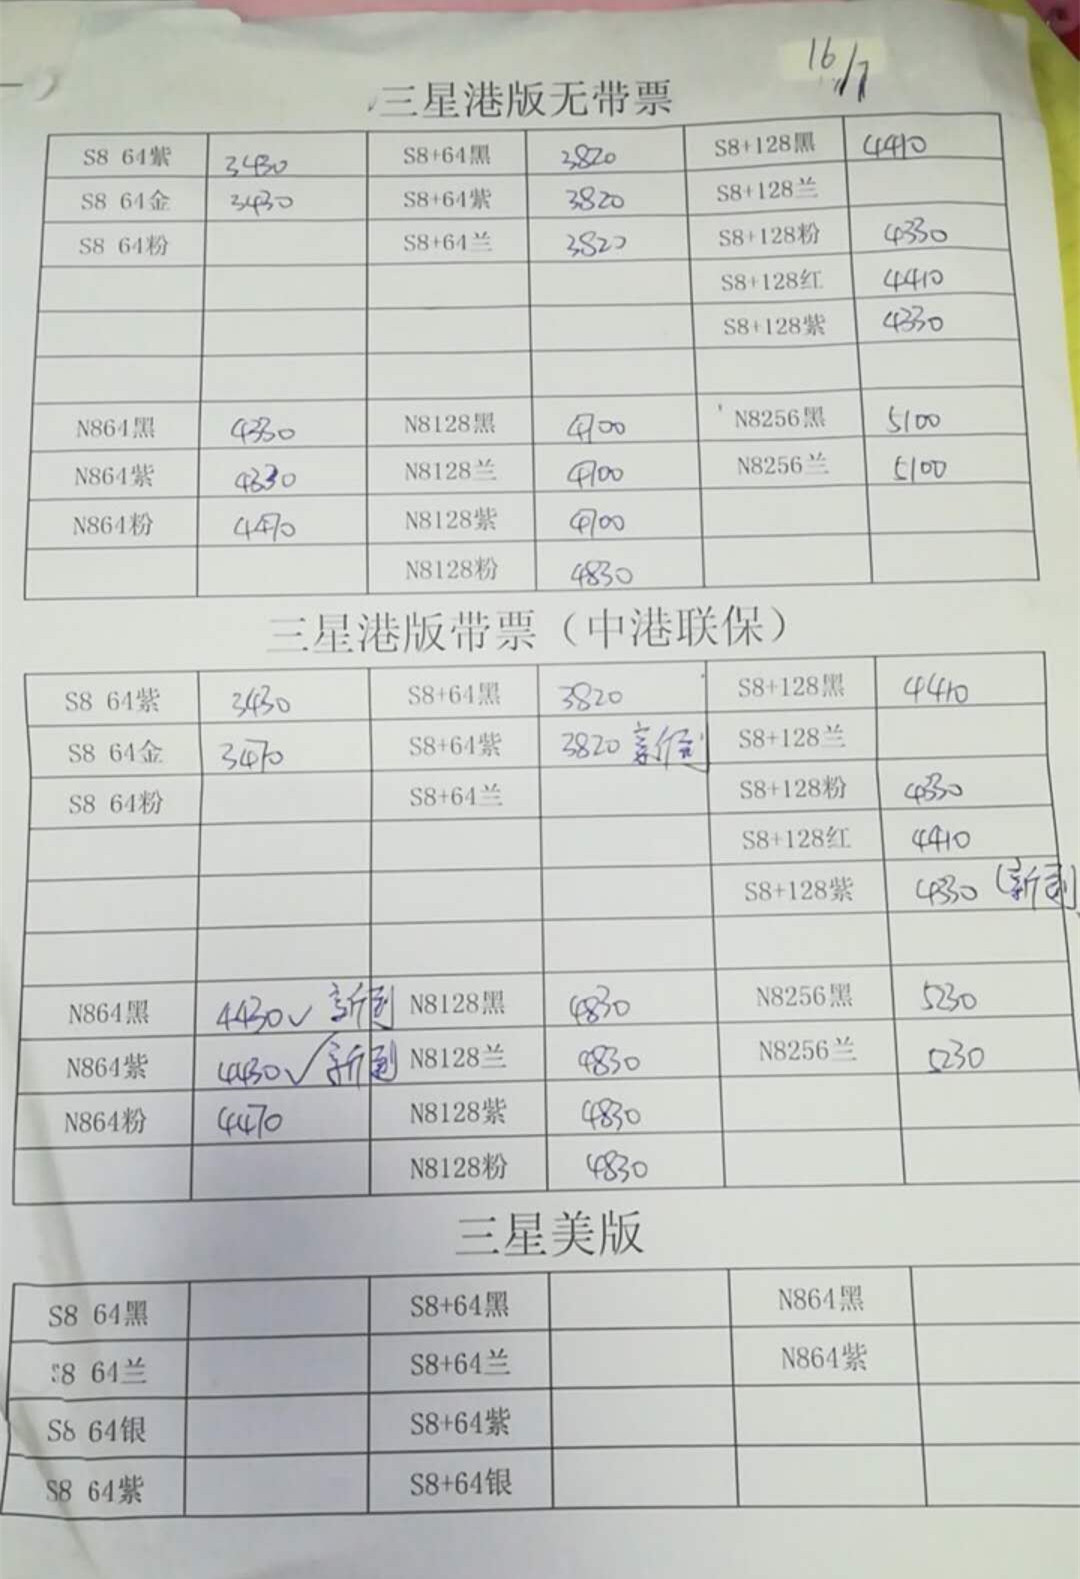 16/7
三星港版无带票
S8 64紫 3430 S8+64黑 3820 S8+128黑 4410
S8 64金 3430 S8+64紫 3820 S8+128兰
S8 64粉 S8+64兰 3820 S8+128粉 4330
S8+128红 4410
S8+128紫 4330
N864黑 4330 N8128黑 4700 N8256黑 5100
N864紫 4330 N8128兰 4700 N8256兰 5100
N864粉 4470 N8128紫 4700
N8128粉 4830
三星港版带票（中港联保）
S8 64紫 3430 S8+64黑 3820 S8+128黑 4410
S8 64金 3470 S8+64紫 3820 新到 S8+128兰
S8 64粉 S8+64兰 S8+128粉 4330
S8+128红 4410
S8+128紫 4330 (新到
N864黑 4430✓ 新到 N8128黑 4830 N8256黑 5230
N864紫 4430✓ 新到 N8128兰 4830 N8256兰 5230
N864粉 4470 N8128紫 4830
N8128粉 4830
三星美版
S8 64黑 S8+64黑 N864黑
S8 64兰 S8+64兰 N864紫
S8 64银 S8+64紫
S8 64紫 S8+64银